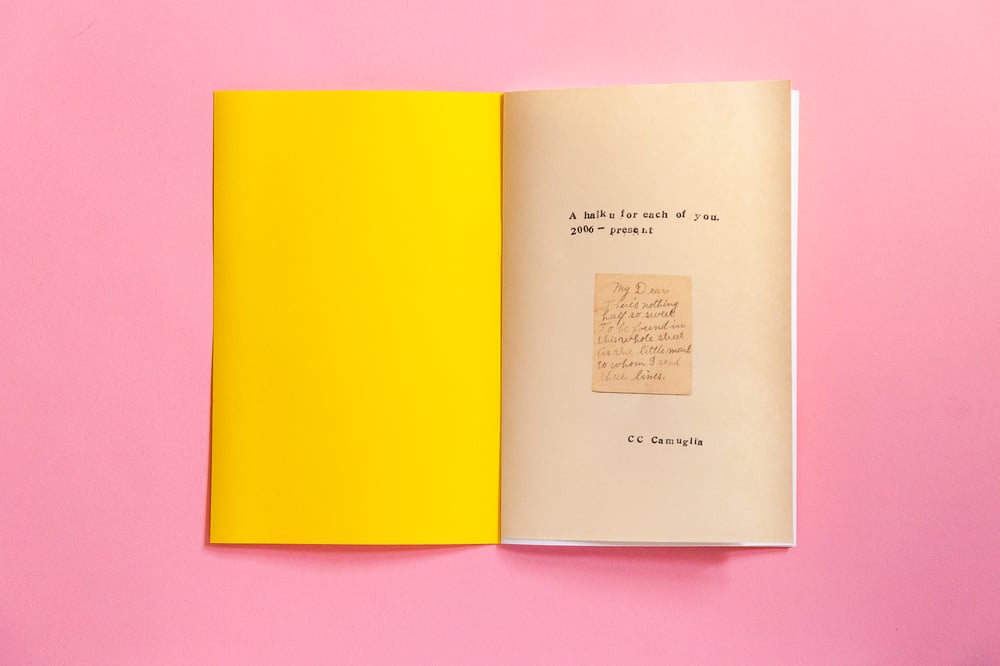 A haiku for each of you.
2006 - present
My Dear
There's nothing
half so sweet
To be found in
this whole street
As the little maid
to whom I send
these lines.
CC Camuglia